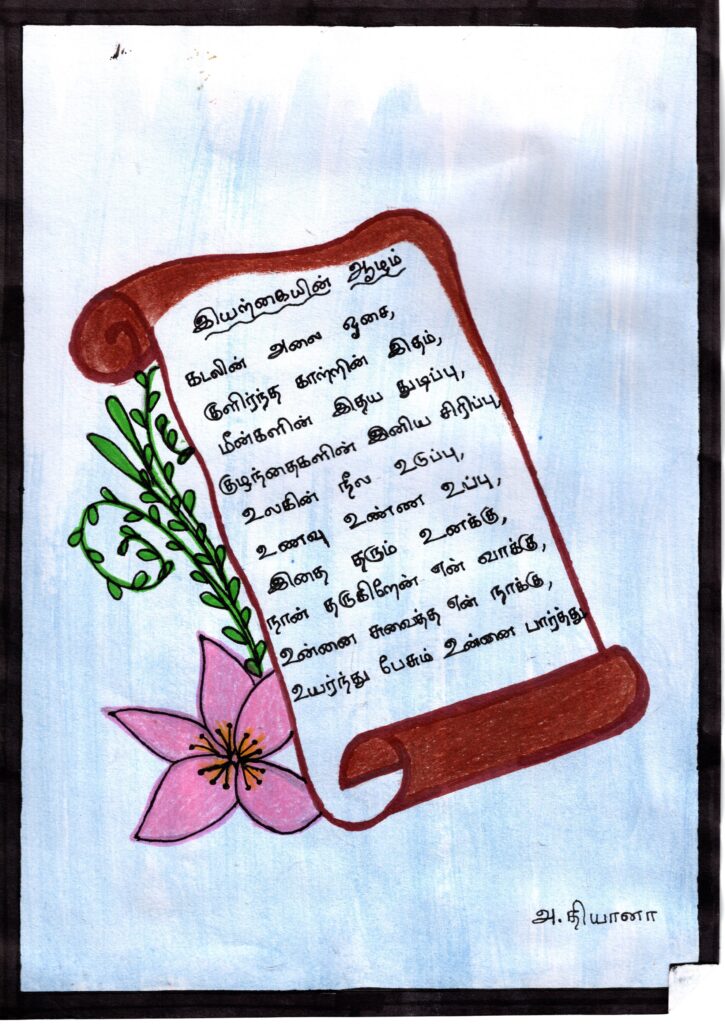 இயற்கையின் ஆழம்
கடலின் அலை ஓசை,
குளிர்ந்த காற்றின் இதம்,
மீன்களின் இதய துடிப்பு,
குழந்தைகளின் இனிய சிரிப்பு,
உலகின் நீல உடுப்பு,
உணவு உண்ண உப்பு,
இதை தரும் உனக்கு,
நான் தருகிறேன் என் வாக்கு,
உன்னை சுவைத்த என் நாக்கு,
உயர்ந்து பேசும் உன்னை பார்த்து
அ.தியானா